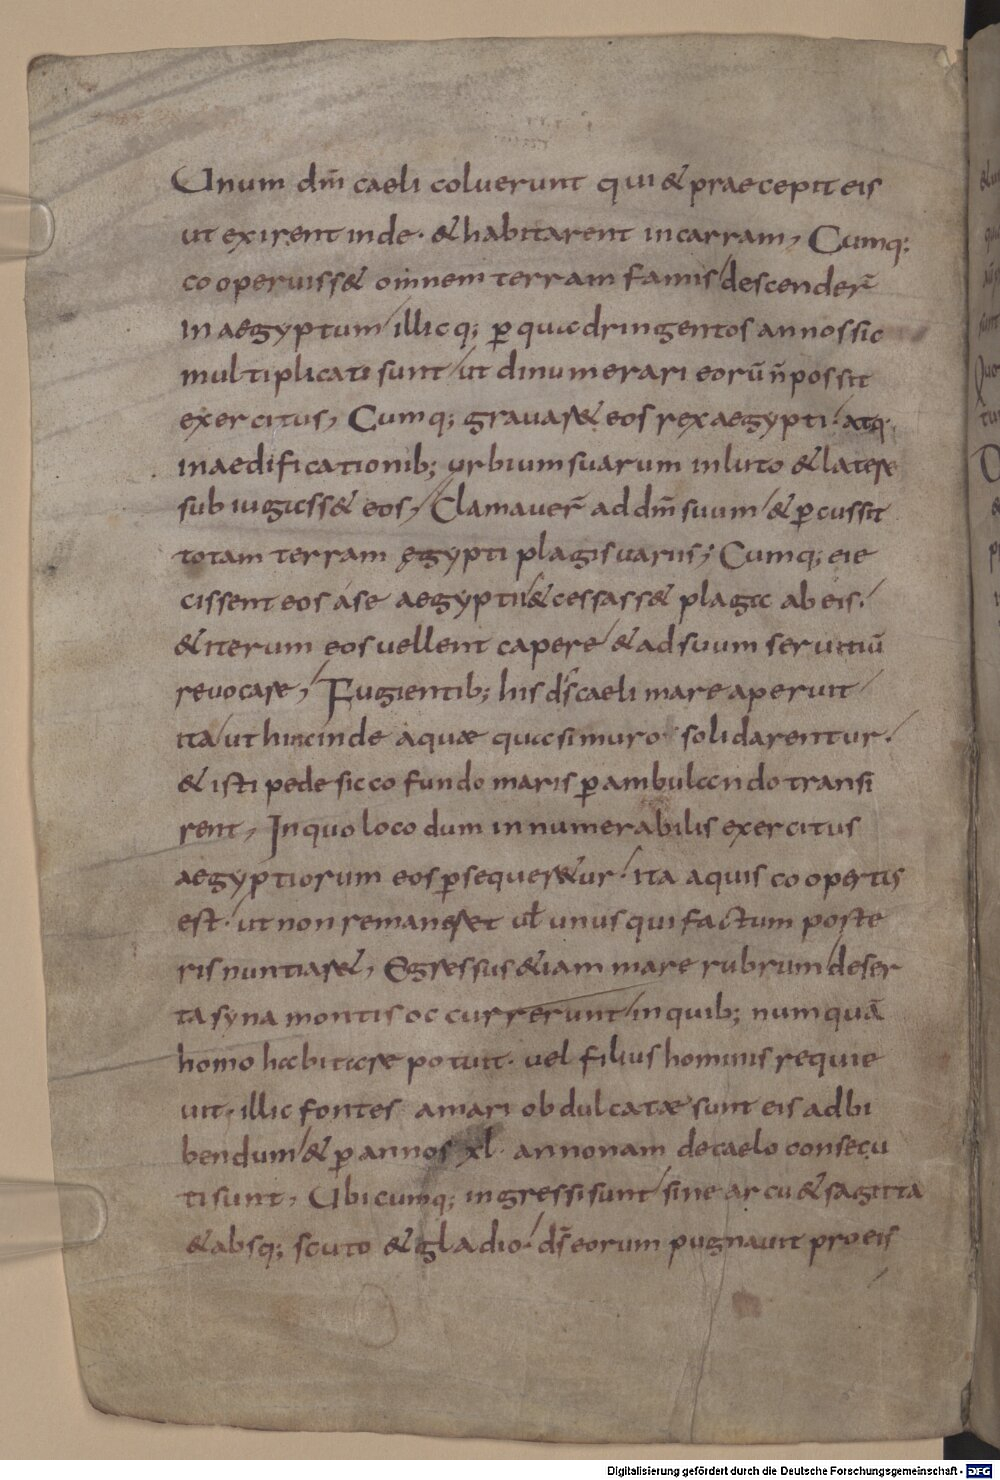 Unum dm̄ caeli coluerunt qui & praecepit eis
ut exirent inde · & habitarent in carram, Cumq;
cooperuiss& omnem terram famis / descender̄
in aegyptum / illicq; ꝑ quadringentos annos sic
multiplicati sunt / ut dinumerari eorū n̄ possit
exercitus, Cumq; grauar& eos rex aegypti · / atq·
in aedificationib; urbium suarum in luto & latere
subiugass& eos, / Clamauer̄ ad dm̄ suum / & ꝑcussit
totam terram ęgypti plagis uariis; Cumq; eie
cissent eos á se aegyptii / & cessass& plaga ab eis · /
& iterum eos uellent capere / & ad suum seruitiū
reuocare, / Fugientib; his ds̄ caeli mare aperuit /
ita / ut hinc inde aquæ quasi muro solidarentur · /
& isti pede sicco fundo maris ꝑambulando transi
rent, In quo loco dum innumerabilis exercitus
aegyptiorum eos ꝑsequer&ur · / ita aquis coopertis
est · / ut non remaneret uł unus qui factum poste
ris nuntiar&, Egressus &iam mare rubrum / deser
ta syna montis occurrerunt / in quib; numquā
homo habitare potuit · uel filius hominis requie
uit · illic fontes amari obdulcatæ sunt eis ad bi
bendum / & ꝑ annos xl · annonam de caelo consecu
ti sunt, Ubicumq; ingressi sunt / sine arcu & sagitta
& absq; scuto & gladio · / ds̄ eorum pugnauit pro eis
Digitalisierung gefördert durch die Deutsche Forschungsgemeinschaft - DFG